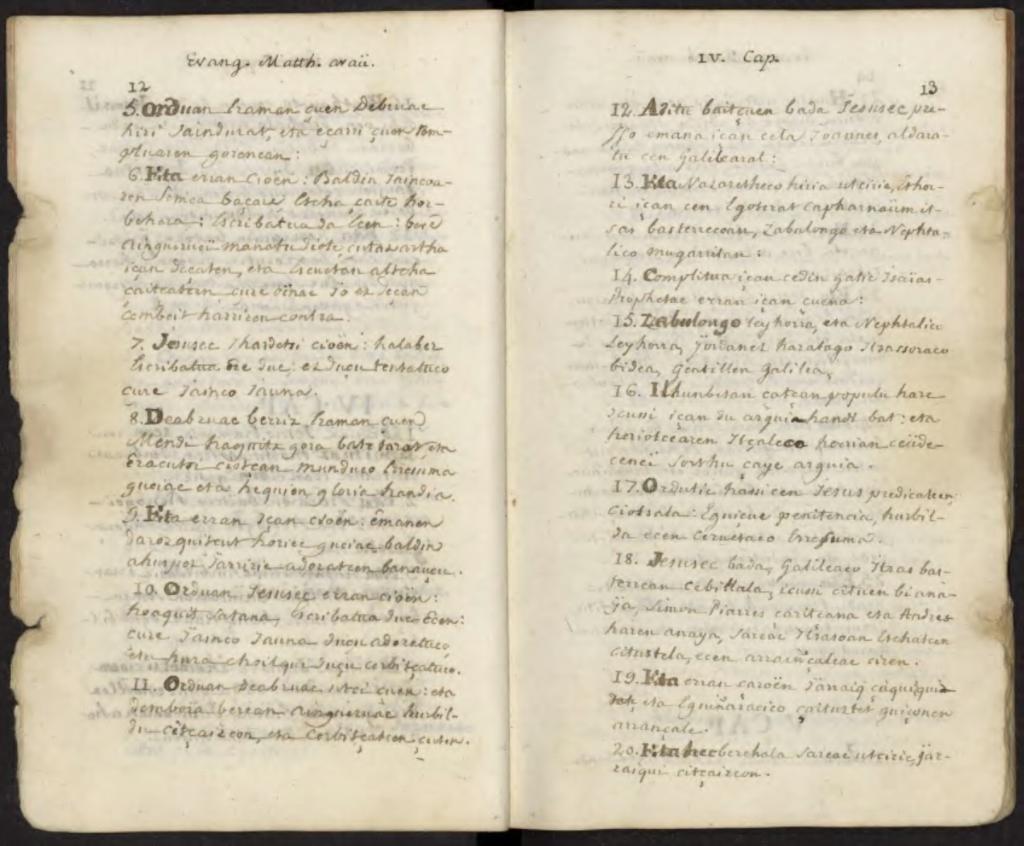 Evang. Matth. araü.
12
5. Orduan haman cuen Debruac
hiri saindurat, eta eçarri çuen tem-
pluaren gorenean:
6. Eta erran cioën: Baldin Jaincoa-
ren Semea baçare Etcha çaite hor-
behera: Escribatua da Ecen: bere
Ainguruei manatu diote, çutaz artha
içan deçaten, eta Escuetan altcha
çaitçatein çure oinac Jo ez deçan
Cembeit harrien contra.
7. Jesusec Ihardetsi cioën: halaber
Escribatua duc: ez duçu tentatuco
çure Jainco Jauna.
8. Deabruac berriz haman cuen
Mendi hagnitz gora batetarat, eta
Eracutsi ciotçan munduco Erresuma
guciac eta hequien gloria handia.
9. Eta erran içan cioën: Emanen
darozquitçut horiec guciac baldin
ahuspez Jarriric adoratcen banauçu.
10. Orduan Jesusec erran cioën:
hoaquit Satana, Escribatua duc Ecen:
çure Jainco Jauna duçu adoratuco,
eta hura choilqui duçu cerbitçatuco.
11. Orduan Deabruac utci cuen: eta
dembora berean Ainguruac hurbil-
du citçaizcon, eta Cerbitçatcen çuten.
IV. Cap.
13
12. Aditu baitçuen bada Jesusec pre-
sso emana içan cela Joannes, aldara-
tu cen Galilearat:
13. Eta Nazaretheco hiria utciric, Ethor-
ri içan cen Egoterat Capharnaüm it-
sas basterrecoan, Zabulongo eta Nephta-
lico mugarritan:
14. Complitua içan cedin gatic Isaias
Prophetac erran içan cuena:
15. Zabulongo Leyhorra, eta Nephtalico
Leyhorra, Jordanez haratago Itsassoraco
bidea, Gentillen Galilea,
16. Ilhunbisan catçan populu harc
icusi içan du arguia handi bat: eta
heriotcearen Itçaleco herrian ceüde-
cenei sorthu çaye arguia.
17. Ordutic hassi cen Jesus predicatcen
Ciotsala: Eguiçue penitencia, hurbil-
da ecen Ceruetaco Erresuma.
18. Jesusec bada, Galileaco Itsas bas-
terrean Cebillala, icusi cituen bi ana-
ja, Simon Piarres caritçana eta Andres
haren anaya, Sareac Itsasoan Etchatcen
cituztela, ecen arrainçaleac ciren.
19. Eta erran caroën
eta Eguinaracico çaituztet guiçonen
arrançale.
20. Eta hec berehala sareac utciric, jar-
raiqui citçaizcon.